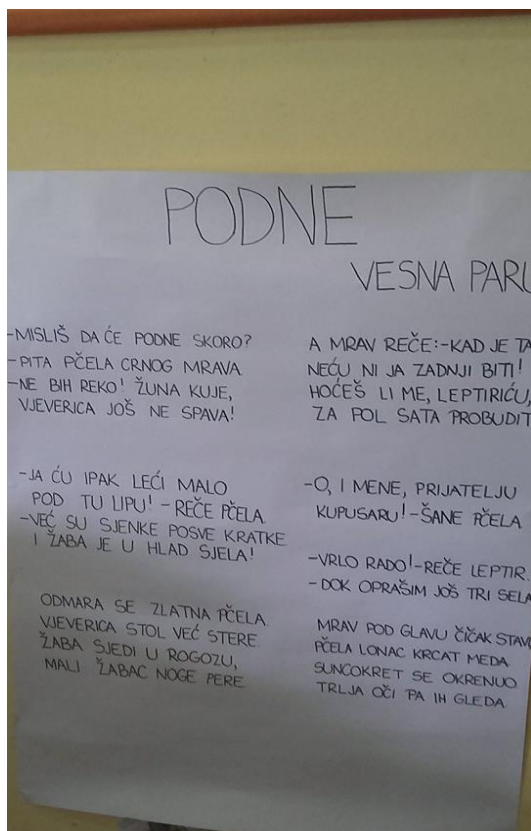 PODNE
VESNA PARU
-MISLIŠ DA ĆE PODNE SKORO?
-PITA PČELA CRNOG MRAVA
-NE BIH REKO! ŽUNA KUJE,
VJEVERICA JOŠ NE SPAVA!
-JA ĆU IPAK LEĆI MALO
POD TU LIPU! - REČE PČELA
-VEĆ SU SJENKE POSVE KRATKE
I ŽABA JE U HLAD SJELA!
ODMARA SE ZLATNA PČELA
VJEVERICA STOL VEĆ STERE
ŽABA SJEDI U ROGOZU,
MALI ŽABAC NOGE PERE
A MRAV REČE:-KAD JE TA
NEĆU NI JA ZADNJI BITI!
HOĆEŠ LI ME, LEPTIRIĆU,
ZA POL SATA PROBUDIT
-O, I MENE, PRIJATELJU
KUPUSARU!-ŠANE PČELA
-VRLO RADO!-REČE LEPTIR
- DOK OPRAŠIM JOŠ TRI SELA
MRAV POD GLAVU ČIČAK STAV
PČELA LONAC KRCAT MEDA
SUNCOKRET SE OKRENUO
TRLJA OČI PA IH GLEDA